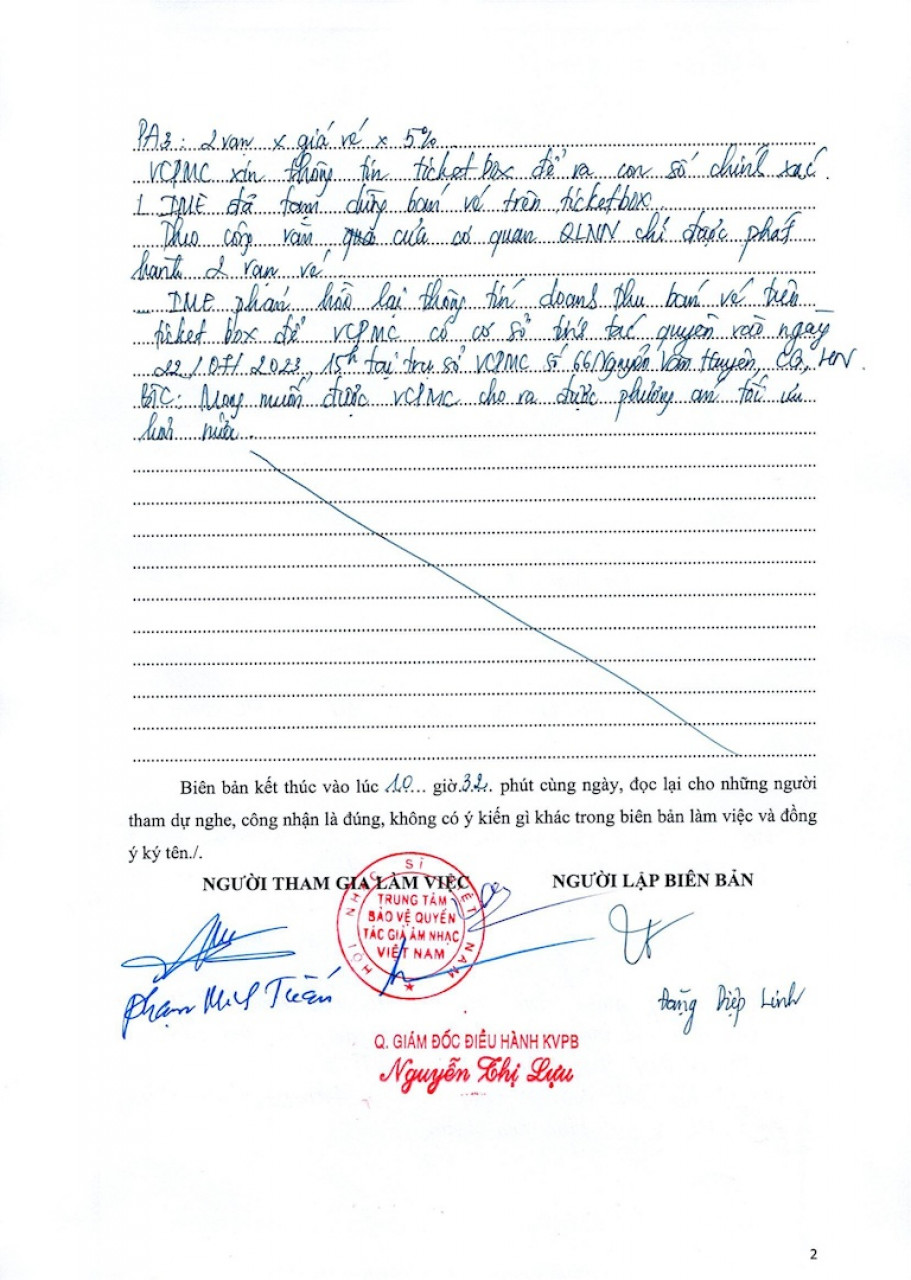 PA3: 2 vạn x giá vé x 5%
VCPMC xin thông tin ticket box để ra con số chính xác.
IME đã tạm dừng bán vé trên ticketbox.
Theo công văn của cơ quan QLNN chỉ được phát
hành 2 vạn vé.
IME phản hồi lại thông tin doanh thu bán vé trên
ticket box để VCPMC có cơ sở tính tác quyền vào ngày
22/07/2023, 15h tại trụ sở VCPMC số 66 Nguyễn Văn Huyên, CG, HN
BTC: Mong muốn được VCPMC cho ra được phương án tối ưu
hơn nữa.
Biên bản kết thúc vào lúc 10... giờ 32. phút cùng ngày, đọc lại cho những người
tham dự nghe, công nhận là đúng, không có ý kiến gì khác trong biên bản làm việc và đồng
ý ký tên./.
NGƯỜI THAM GIA LÀM VIỆC NGƯỜI LẬP BIÊN BẢN
HỘI NHẠC SĨ VIỆT NAM
TRUNG TÂM
BẢO VỆ QUYỀN
TÁC GIẢ ÂM NHẠC
VIỆT NAM
Phạm Tuấn
Đặng Diệp Linh
Q. GIÁM ĐỐC ĐIỀU HÀNH KVPB
Nguyễn Thị Lựu
2